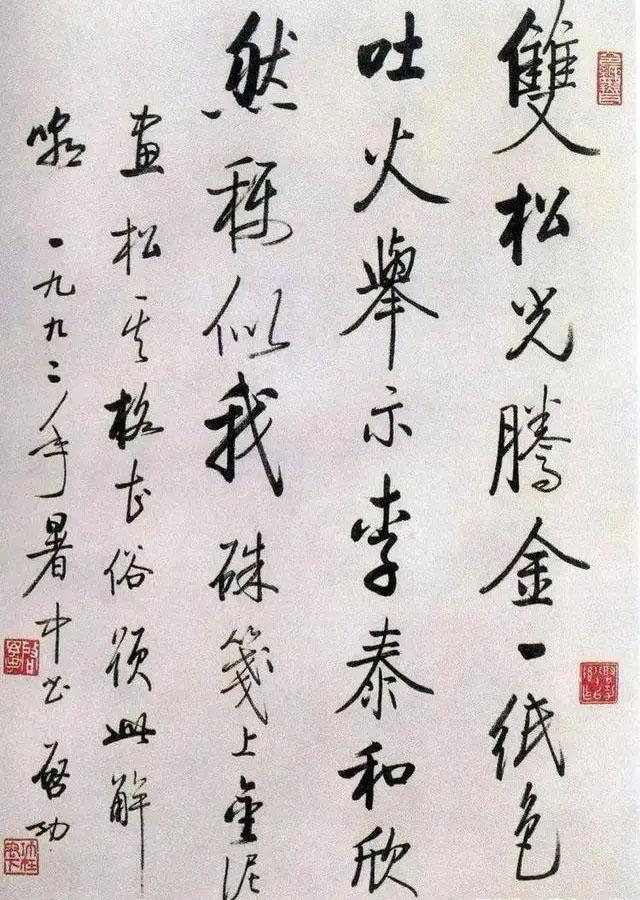 雙松光騰金一紙色
吐火舉示李泰和欣
然稱似我 硃箋上金泥
畫松其格甚俗題此解
嘲 一九九二年暑中書 啓功